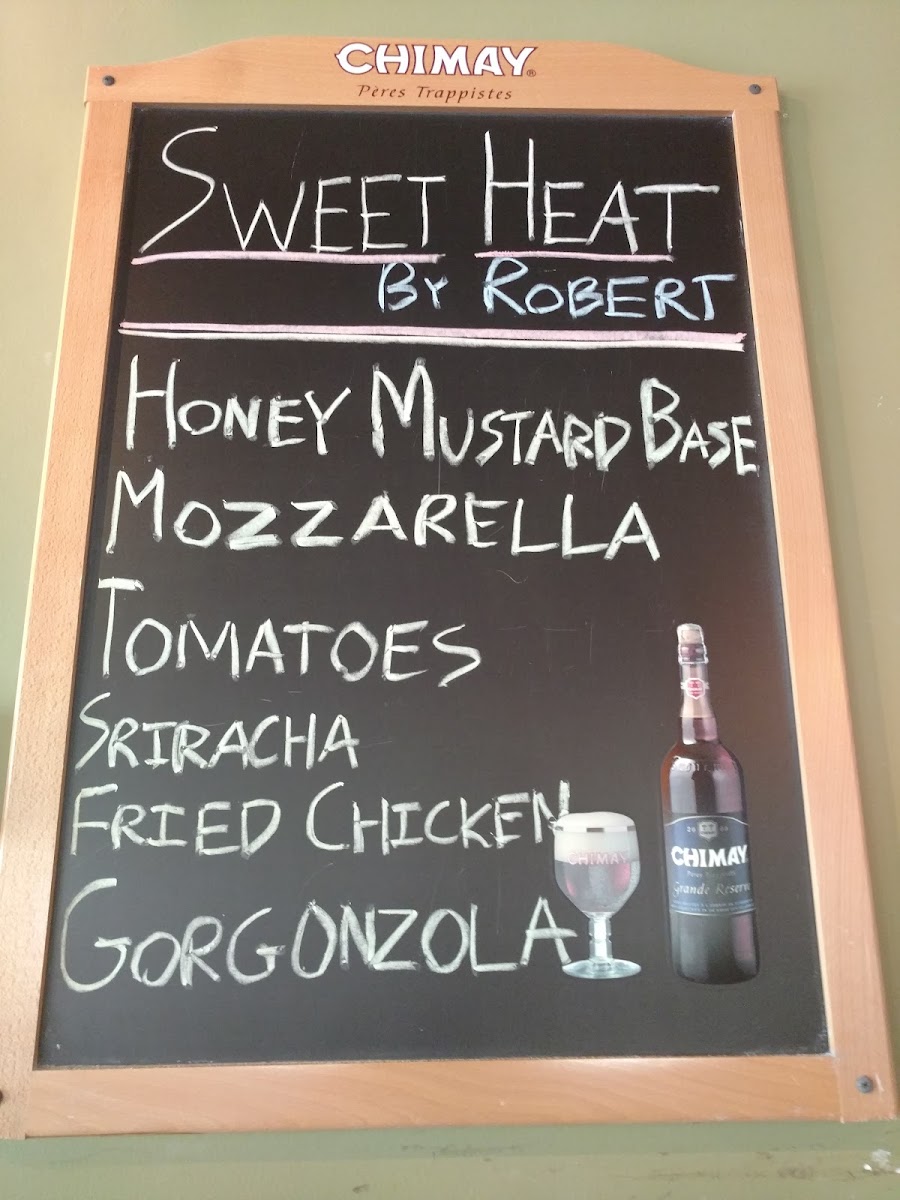 CHIMAY®
Pères Trappistes
SWEET HEAT
BY ROBERT
HONEY MUSTARD BASE
MOZZARELLA
TOMATOES
SRIRACHA
FRIED CHICKEN
GORGONZOLA
CHIMAY
CHIMAY
Pères Trappistes
Grande Réserve